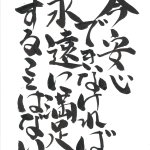 今安心
できなければ
永遠に満足
することはない